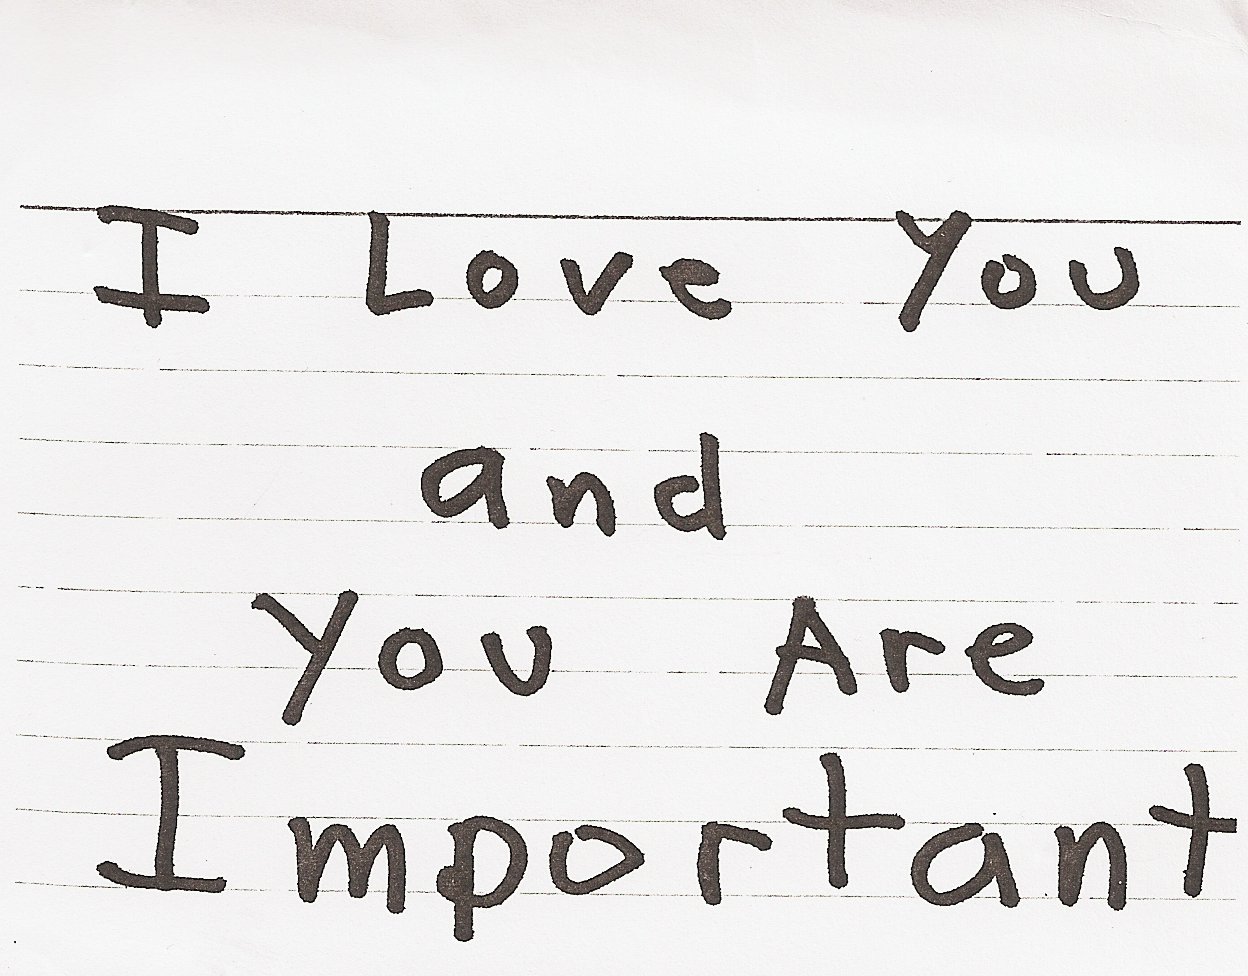 I Love You
and
You Are
Important